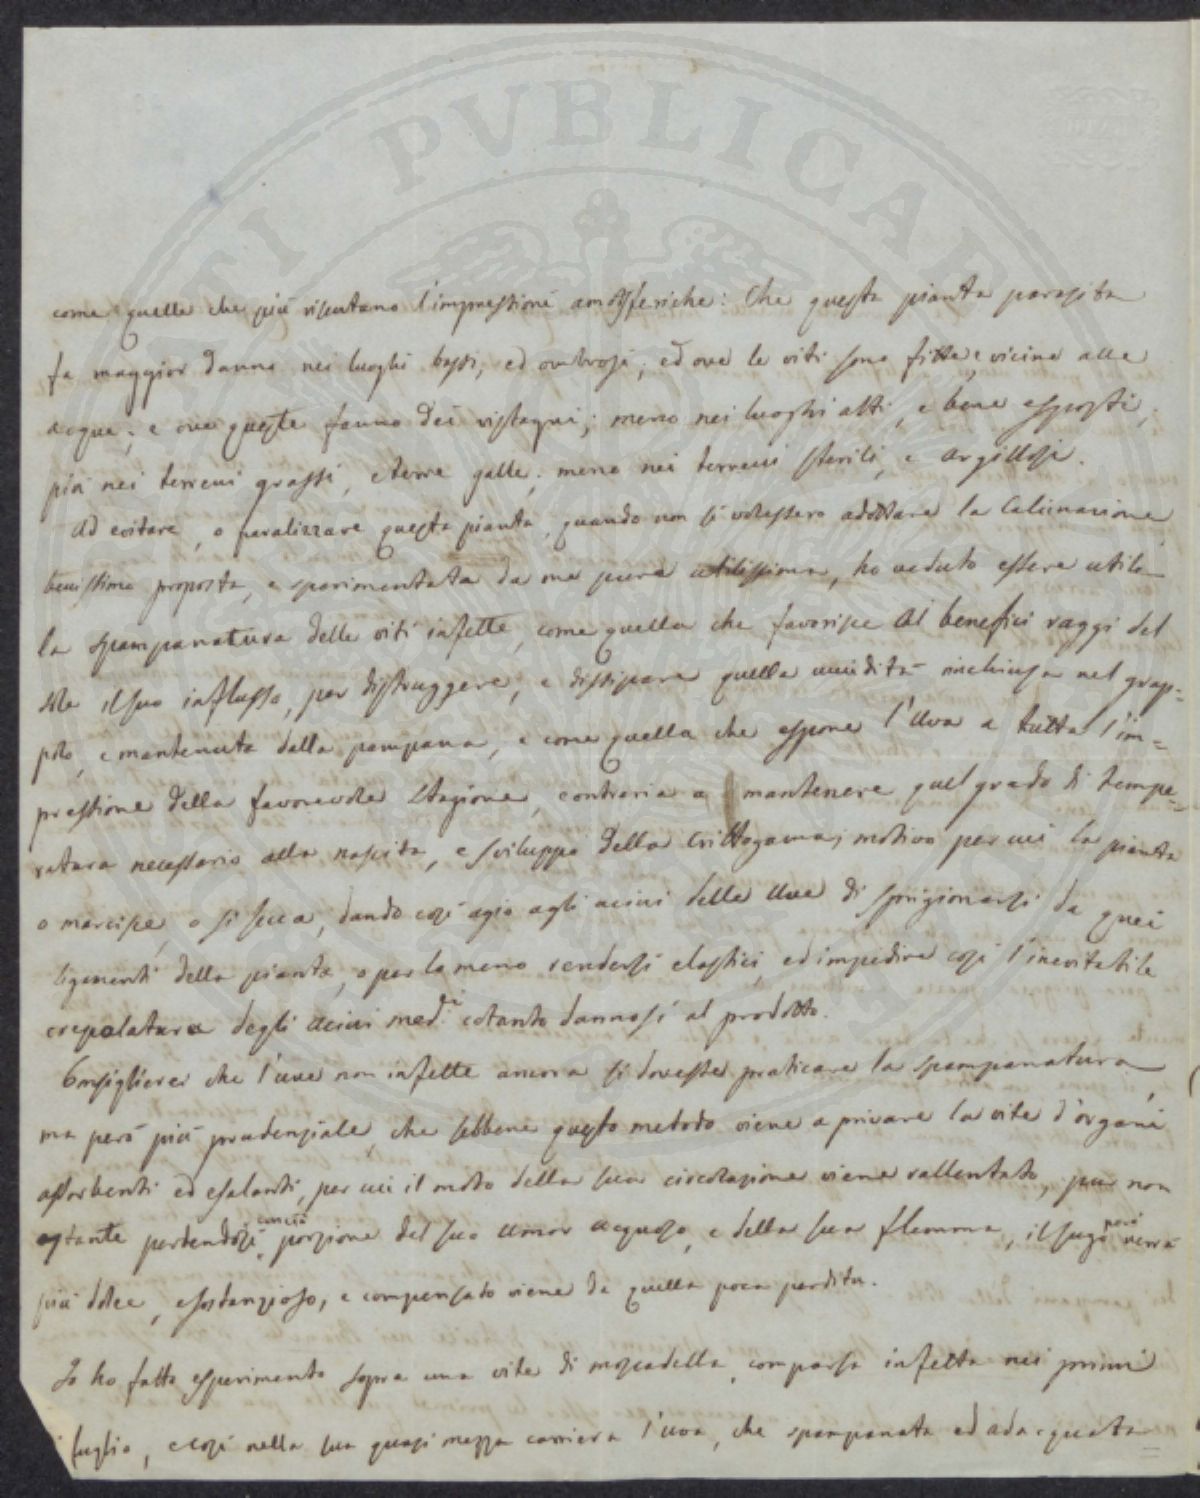 PVBLICAE
come quelle che più risentano l'impressione amosferiche: Che questa pianta parasita
fa maggior danno nei luoghi bassi, ed ombrosi; ed ove le viti sono fitte, e vicine alle
acque; e ove queste fanno dei ristagni; meno nei luoghi alti, e bene esposti;
più nei terreni grassi, e terre galle; meno nei terreni sterili, e argillosi.
Ad evitare, o paralizzare questa pianta, quando non si volessero adottare la Calcinazione
benissimo proposta, e sperimentata da me pure utilissima, ho veduto essere utile
la spampanatura delle viti infette, come quella che favorisce ai benefici raggi del
Sole il suo influsso, per distruggere, e dissipare quella umidità inchiusa nel grap-
polo, e mantenuta dalla pampana, e come quella che espone l'Uva a tutta l'im=
pressione della favorevole Stagione, contraria a mantenere quel grado di tempe=
ratura necessario alla nascita, e sviluppo della Crittogama; motivo per cui la pianta
o marcisce, o si secca, dando così agio agli acini delle Uve di sprigionarsi da quei
ligamenti della pianta, o per lo meno rendersi elastici, ed impedire così l'inevitabile
crepolatura degli acini med.mi cotanto dannosi al prodotto.
Consiglierei che l'uve non infette ancora si dovesse praticare la spampanatura,
ma però più prudenziale, che sebbene questo metodo viene a privare la vite d'organi
assorbenti ed esalanti, per cui il moto della sua circolazione viene rallentato, pur non
ostante perdendosi porzione del suo umor acquoso, e della sua flemma, il sugo però verrà
più dolce, e sostanzioso, e compensato viene da quella poca perdita.
Io ho fatto esperimento sopra una vite di moscadella, comparsa infetta nei primi
luglio, e così nella sua quasi mezza carriera l'uva, che spampanata ed adacquata